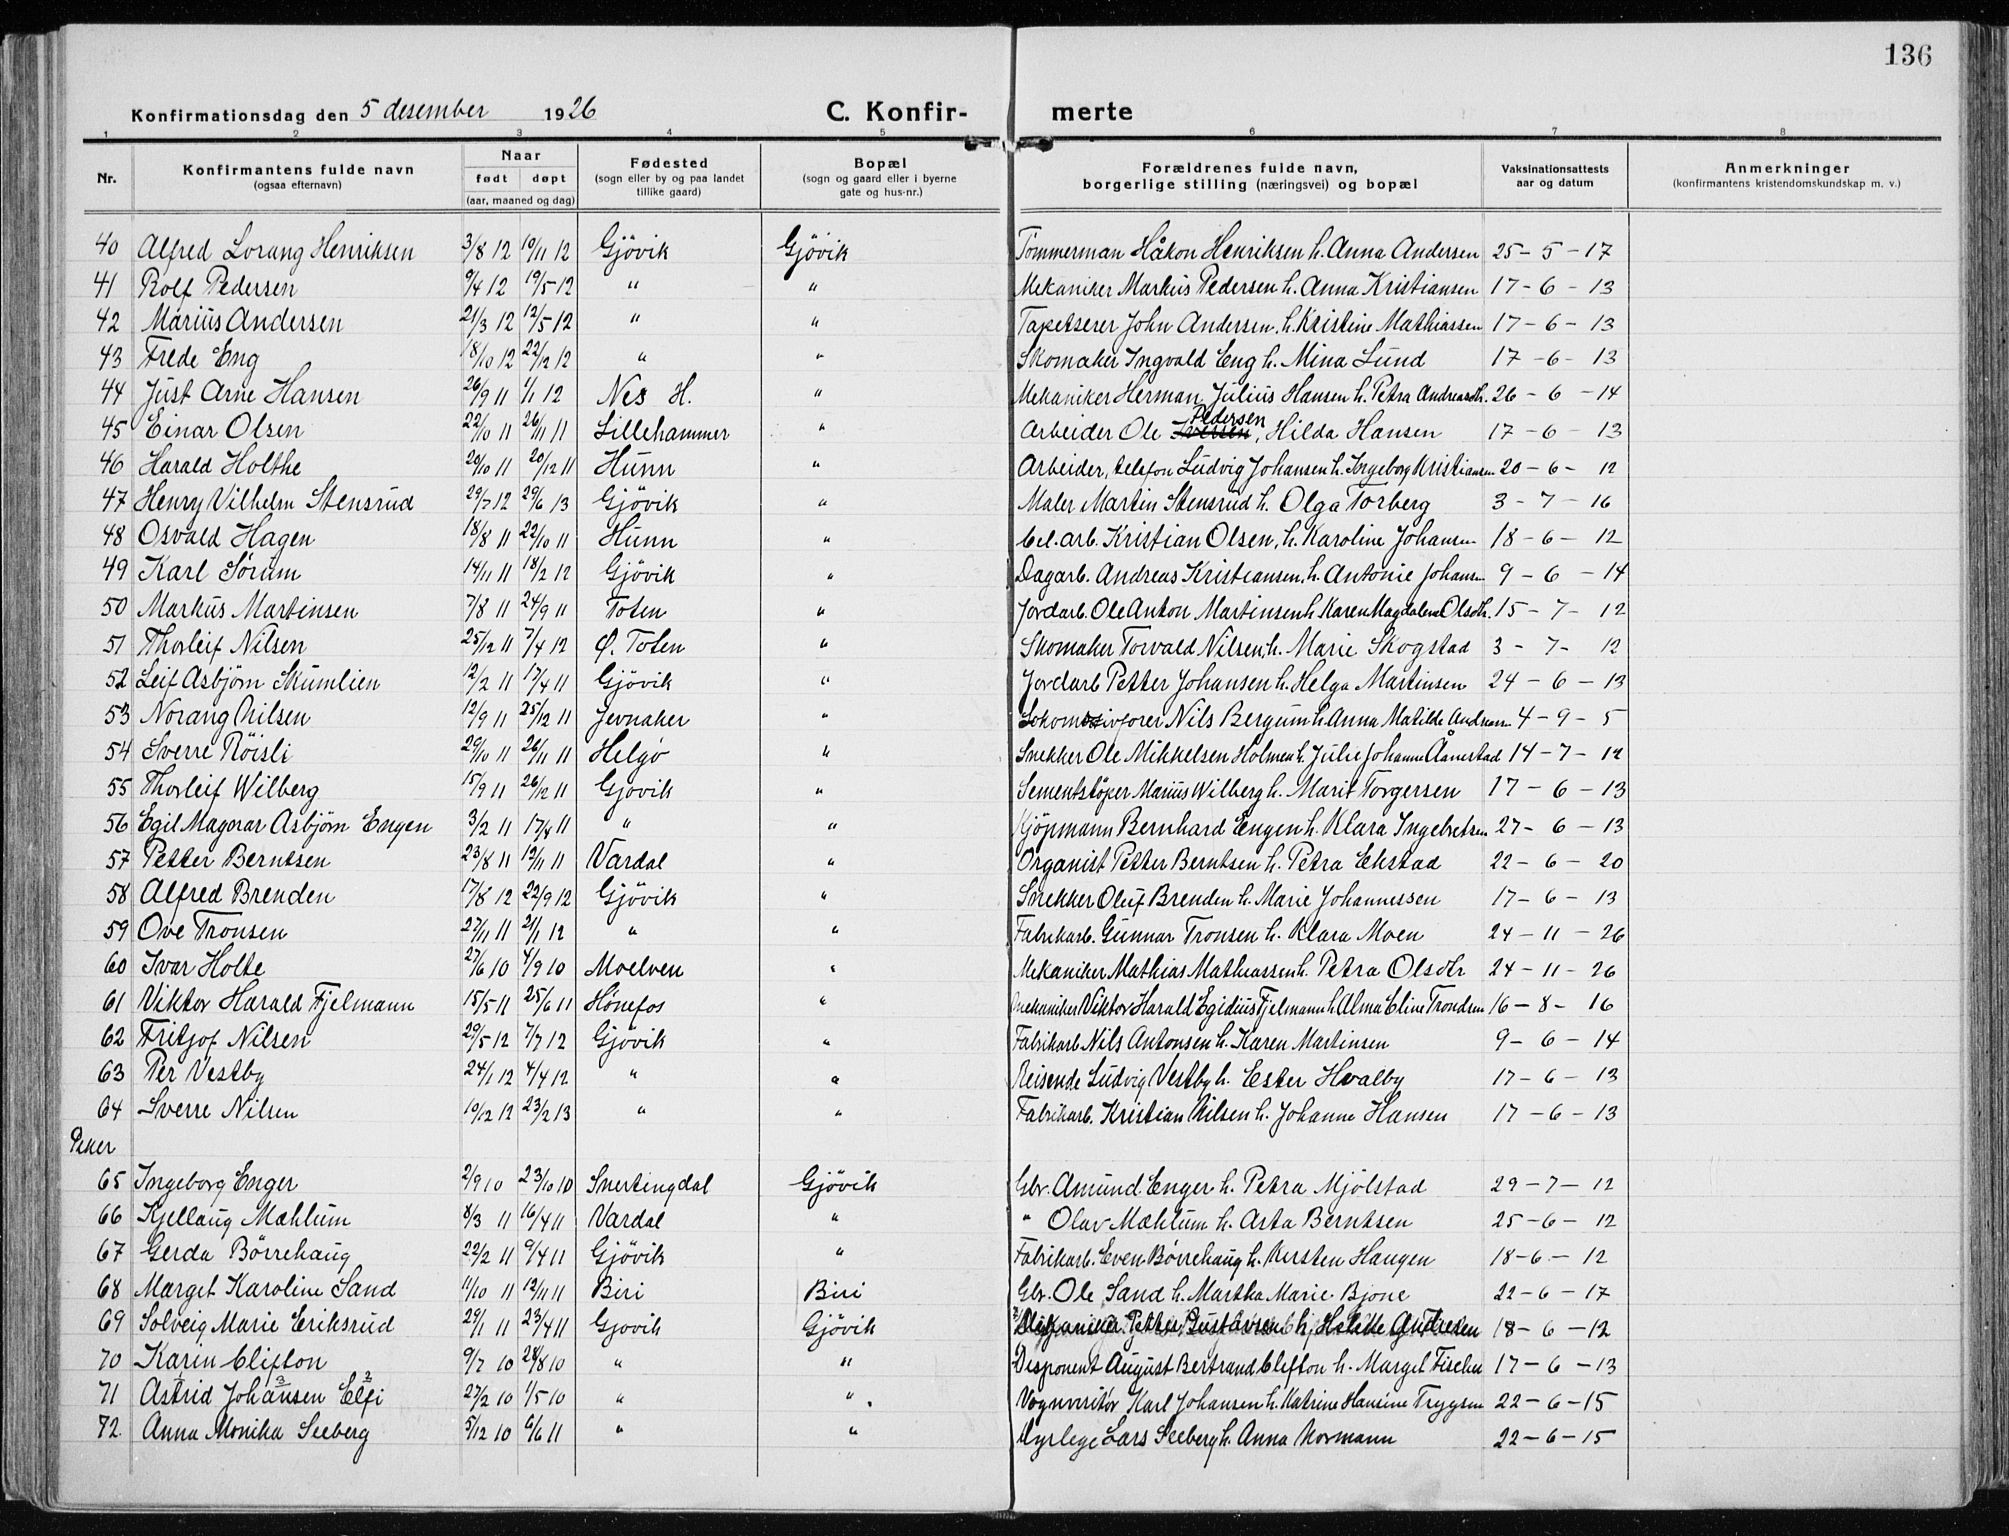 136
Konfirmationsdag den 5 desember 1926 C. Konfir- merte
1 2 3 4 5 6 7 8
Nr. Konfirmantens fulde navn (ogsaa efternavn) Naar født døpt (aar, maaned og dag) Fødested (sogn eller by og paa landet tillike gaard) Bopæl (sogn og gaard eller i byerne gate og hus-nr.) Forældrenes fulde navn, borgerlige stilling (næringsvei) og bopæl Vaksinationsattests aar og datum Anmerkninger (konfirmantens kristendomskundskap m. v.)
40 Alfred Lorang Henriksen 3/8 12 10/11 12 Gjövik Gjövik Tömmerman Håkon Henriksen h. Anna Andersen 25-5-17
41 Rolf Pedersen 9/4 12 19/5-12 " " Mekaniker Markus Pedersen h. Anna Kristiansen 17-6-13
42 Marius Andersen 21/3 12 12/5-12 " " Tapetserer John Andersen, h. Kristine Mathiassen 17-6-13
43 Frede Eng 18/10 12 22/12 12 " " Skomaker Ingvald Eng h. Mina Lund 17-6-13
44 Just Arne Hansen 26/9 11 1/1 12 Nes H. " Mekaniker Herman Julius Hansen h. Petra Andreasdtr. 26-6-14
45 Einar Olsen 22/10 11 26/11 11 Lillehammer " Arbeider Ole Iversen Pedersen, Hilda Hansen 17-6-13
46 Harald Holthe 20/10 11 20/12 11 Hunn " Arbeider, telefon Ludvig Johansen h. Ingeborg Kristiansen 20-6-12
47 Henry Vilhelm Stensrud 29/7 12 29/6 13 Gjövik " Maler Martin Stensrud h. Olga Torberg 3-7-16
48 Osvald Hagen 18/8 11 22/10 11 Hunn " Cel.arb. Kristian Olsen, h. Karoline Johansen 18-6-12
49 Karl Sörum 14/11 11 18/2 12 Gjövik " Dagarb. Andreas Kristiansen, h. Antonie Johansen 9-6-14
50 Markus Martinsen 7/8 11 24/9 11 Toten " Jordarb. Ole Anton Martinsen h Karen Magdalena Olsdtr. 15-7-12
51 Thorleif Nilsen 25/12 11 7/4 12 Ø. Toten " Skomaker Torvald Nilsen, h. Marie Skogstad 3-7-12
52 Leif Asbjörn Skumlien 12/2 11 17/4 11 Gjövik " Jordarb Petter Johansen h. Helga Martinsen 24-6-13
53 Norang Nilsen 12/9 11 25/12 11 Jevnaker " Nils Bergum h Anna Matilde Andresen 4-9-5
54 Sverre Röisli 29/10 11 26/11 11 Helgö " Snekker Ole Mikkelsen Holmen h. Julie Johanne Aanerstad 14-7-12
55 Thorleif Wilberg 15/9 11 26/12 11 Gjövik " Sementstöper Marius Wilberg h. Marit Torgersen 17-6-13
56 Egil Magnar Asbjörn Engen 3/2 11 17/4 11 " " Kjöpmann Bernhard Engen h. Klara Ingebretsen 27-6-13
57 Petter Berntsen 23/8 11 12/11 11 Vardal " Organist Petter Berntsen h. Petra Ekstad 22-6-20
58 Alfred Brenden 17/8 12 22/9 12 Gjövik " Snekker Oluf Brenden h. Marie Johannessen 17-6-13
59 Ove Tronsen 27/11 11 21/1 12 " " Fabrikarb. Gunnar Tronsen h. Klara Moen 24-11-26
60 Ivar Holte 27/6 10 4/9 10 Moelven " Mekaniker Mathias Mathiassen h. Petra Olsdtr 24-11-26
61 Viktor Harald Fjelmann 15/5 11 25/6 11 Hönefos " Mekaniker Viktor Harald Egidius Fjelmann h Alma Eline Trondsen 16-8-16
62 Fritjof Nilsen 29/5-12 7/7 12 Gjövik " Fabrikarb Nils Antonsen h. Karen Martinsen 9-6-14
63 Per Vestby 24/1 12 4/4 12 " " Reisende Ludvig Vestby h. Ester Hvalby 17-6-13
64 Sverre Nilsen 19/12 12 23/2 13 " " Fabrikarb. Kristian Nilsen h. Johanne Hansen 17-6-13
Piker
65 Ingeborg Enger 2/9 10 23/10 10 Snertingdal Gjövik Gbr. Amund Enger h. Petra Mjölstad 29-7-12
66 Kjellaug Mæhlum 8/3 11 16/4 11 Vardal " " Olav Mæhlum h. Asta Berntsen 25-6-12
67 Gerda Börrehaug 22/2 11 9/4 11 Gjövik " Fabrikarb. Even Börrehaug h. Kersten Haugen 18-6-12
68 Marget Karoline Sand 11/10 11 12/11 11 Biri Biri Gbr. Ole Sand h. Martha Marie Bjone 22-6-17
69 Solveig Marie Eriksrud 29/1 11 23/4 11 Gjovik Gjövik 18-6-12
70 Karin Clifton 9/7 10 28/8 10 " " Disponent August Bertrand Clifton h. Marget Fischer 17-6-13
71 Astrid Johansen Elfi 27/2 10 1/5 10 " " Vognvisitör Karl Johansen h. Katrine Hansine Trygsen 22-6-15
72. Anna Monika Seeberg 5/12 10 6/6 11 " " Dyrlege Lars Seeberg h. Anna Normann 22-6-15